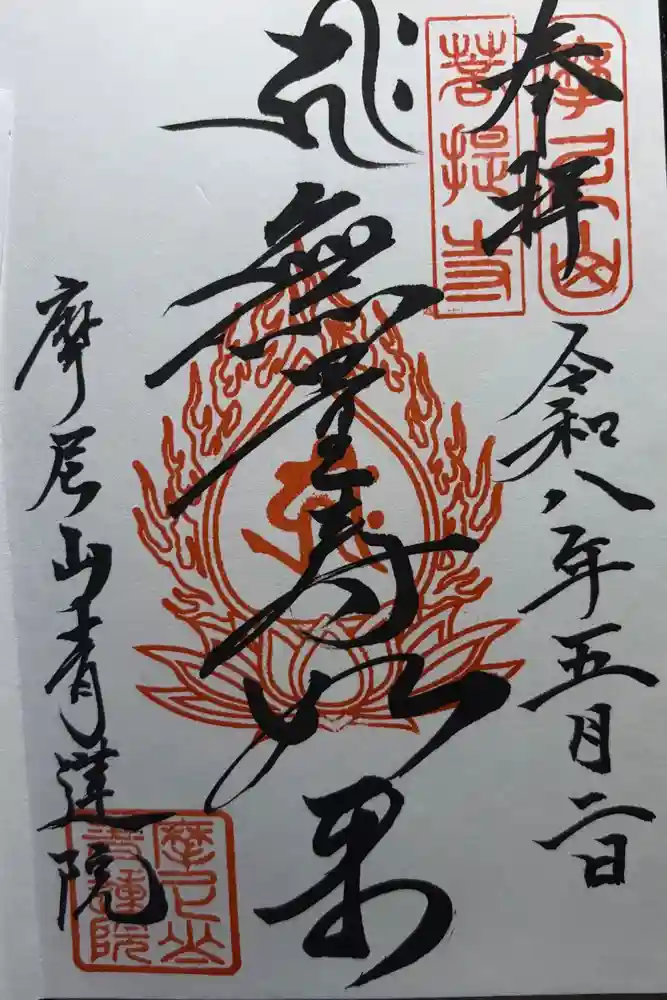 奉拝
令和八年五月二日
摩尼山
菩提寺
𑖮𑖿𑖨𑖱𑖾
無量寿如来
摩尼山青蓮院
摩尼山
青蓮院